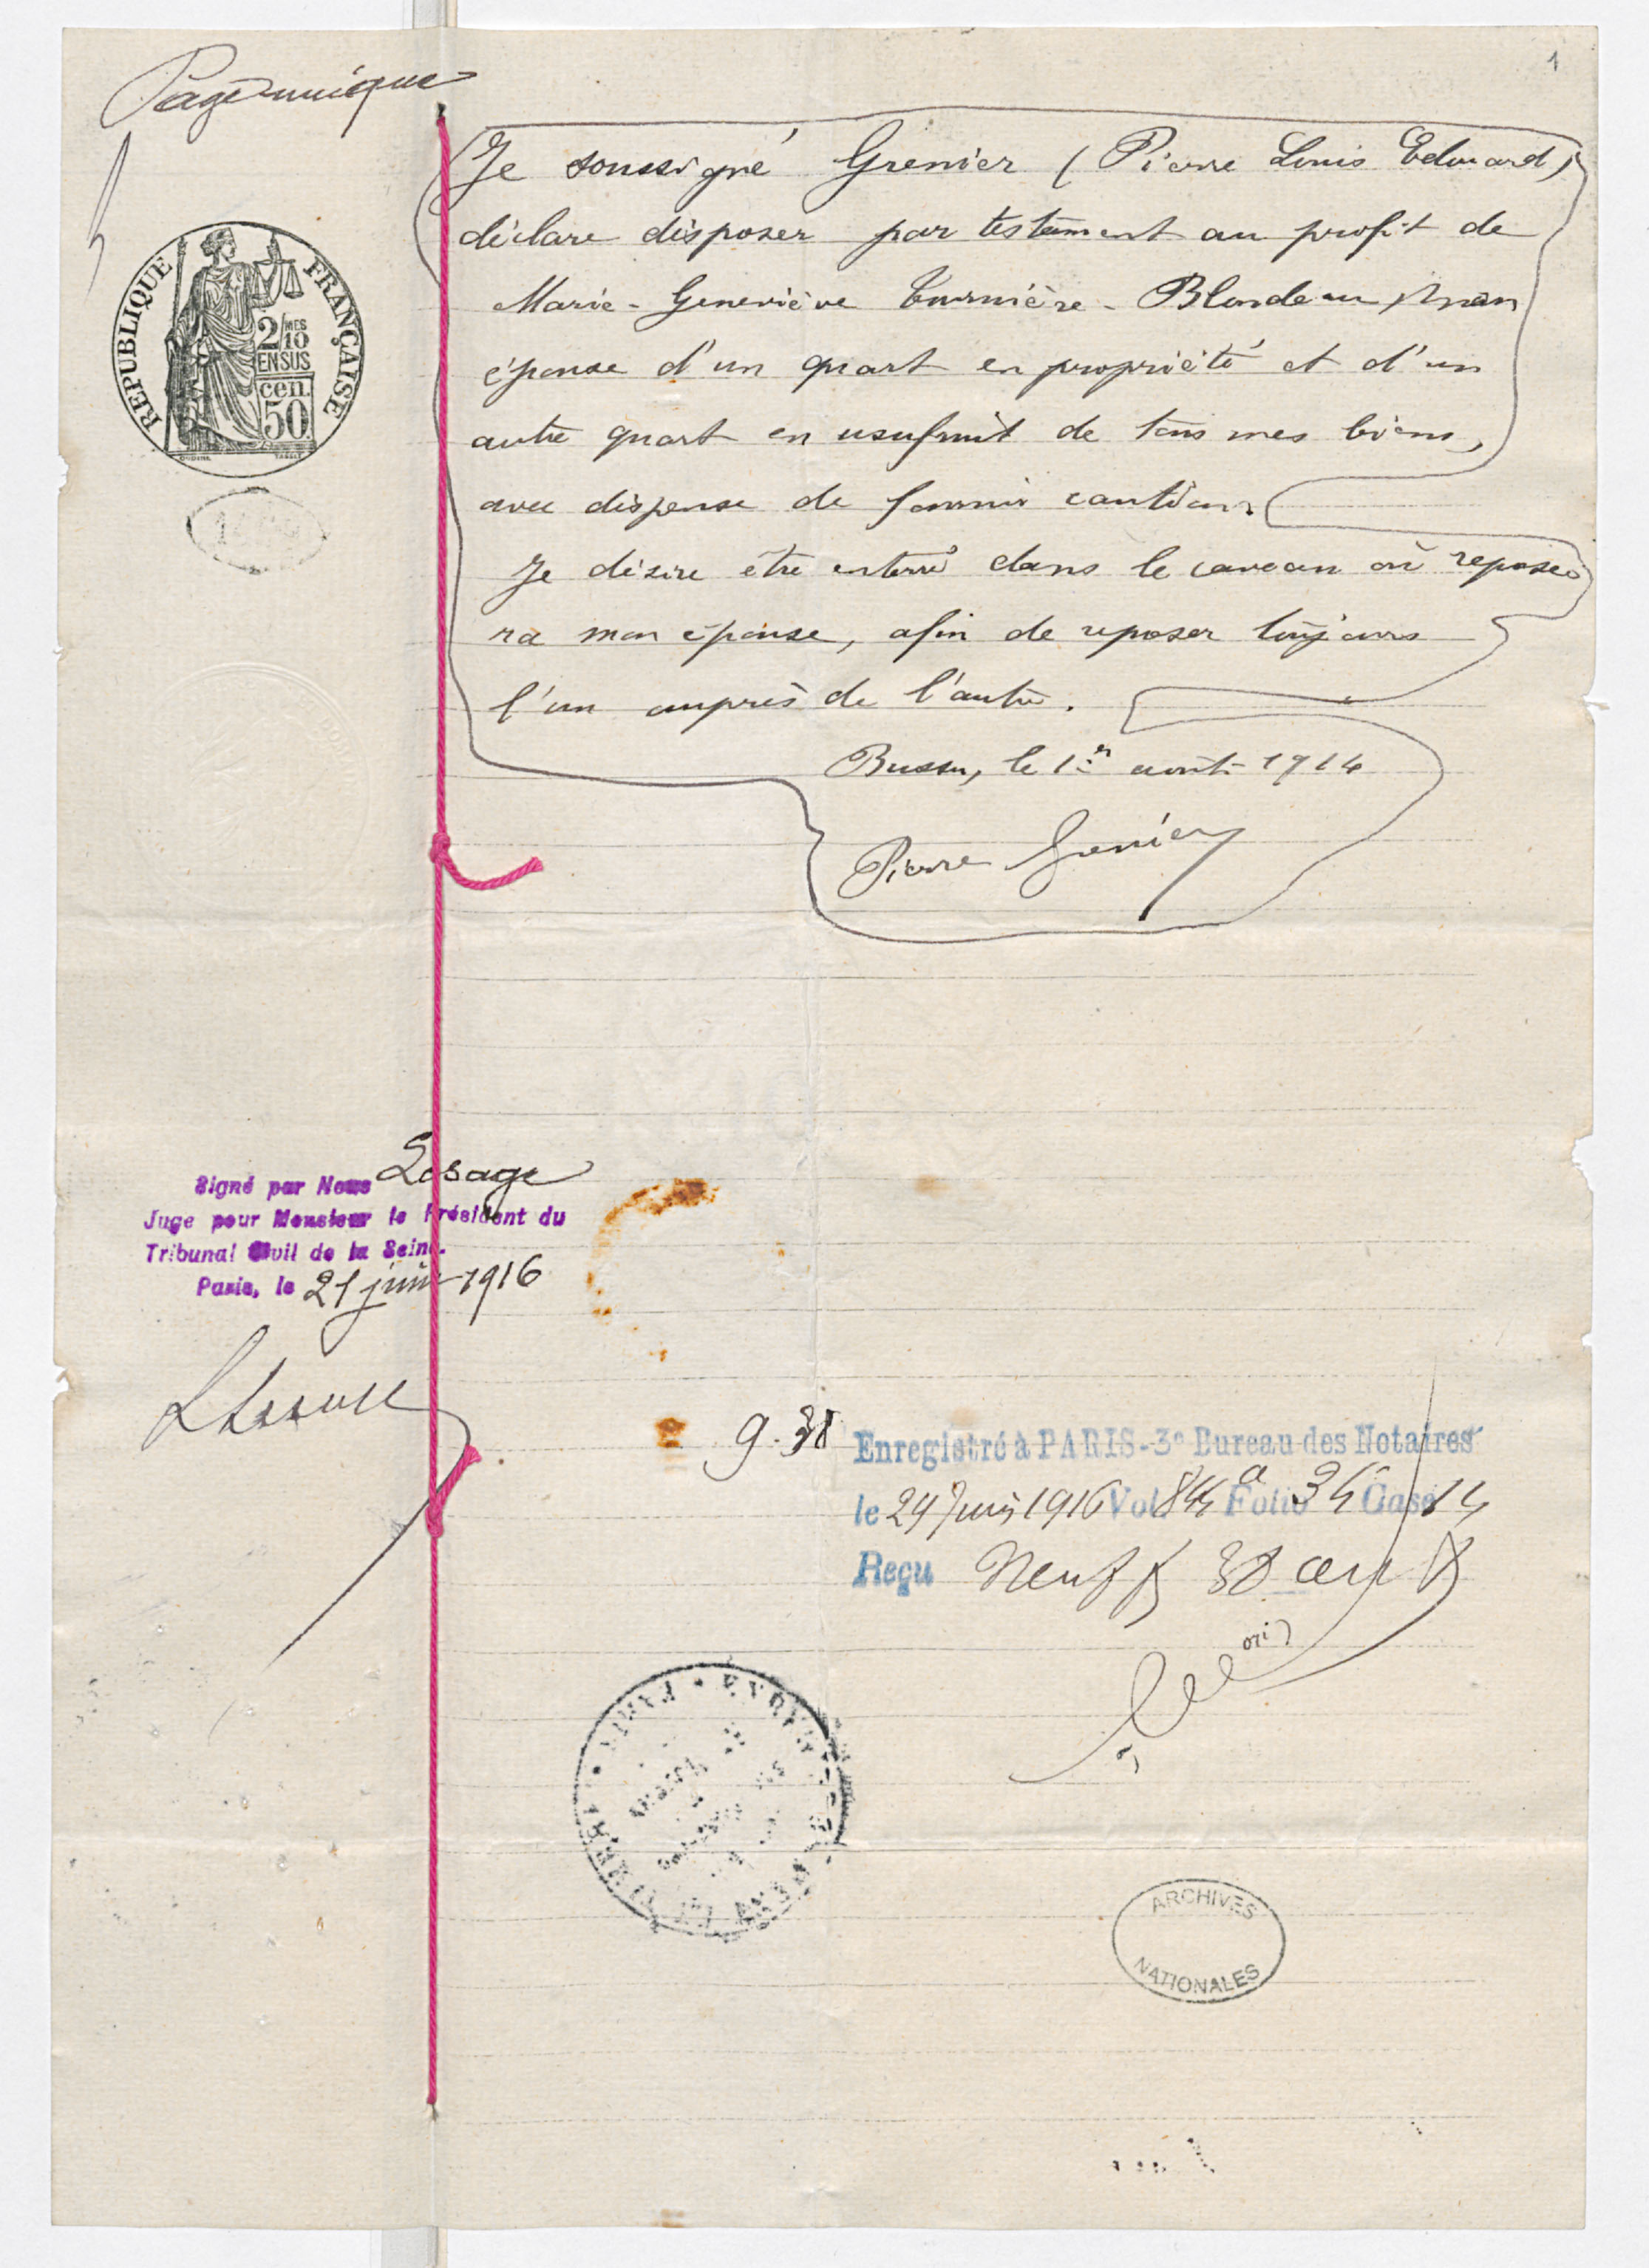 1
Page unique
Je soussigné Grenier (Pierre Louis Edouard)
déclare disposer par testament au profit de
Marie-Geneviève Tournière-Blondeau, mon
épouse d'un quart en propriété et d'un
autre quart en usufruit de tous mes biens,
avec dispense de fournir caution.
Je désire être enterré dans le caveau où repose
ra mon épouse, afin de reposer toujours
l'un auprès de l'autre.
Bussu, le 1er août 1914
Pierre Grenier
REPUBLIQUE FRANÇAISE
2/10 MES
EN SUS
50 cen
Signé par Nous Lesage
Juge pour Monsieur le Président du
Tribunal Civil de la Seine.
Paris, le 21 juin 1916
9.38
Enregistré à PARIS-3e Bureau des Notaires
le 24 Juin 1916 Vol 844 a Folio 34 Case 14
Reçu Neuf f 38 cent
ARCHIVES
NATIONALES